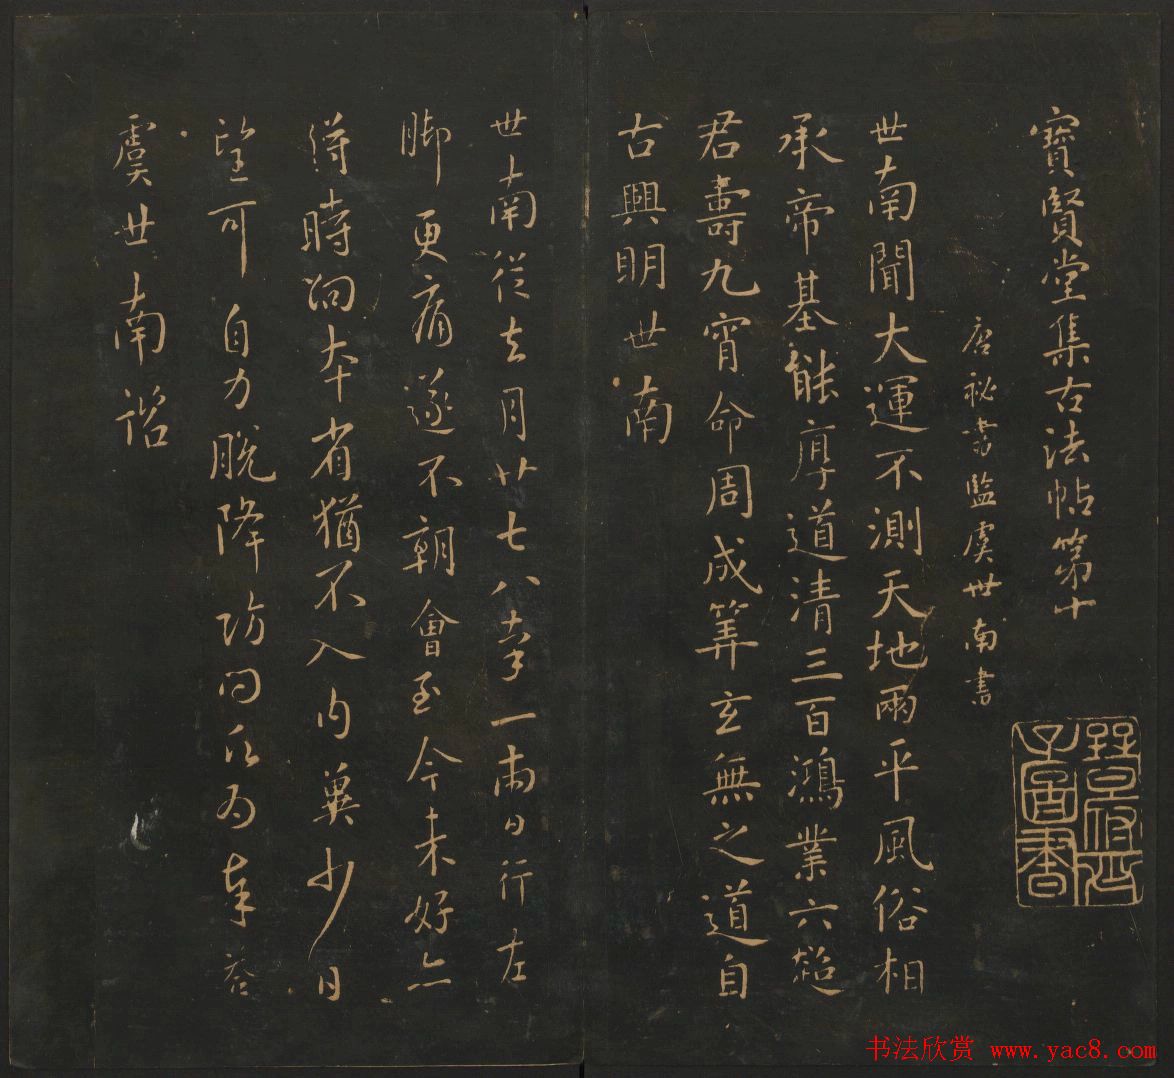 寶賢堂集古法帖第十
唐祕書監虞世南書
世南聞大運不測天地兩平風俗相
承帝基能厚道清三百鴻業六超
君壽九霄命周成筭玄無之道自
古興明世南
世南從去月廿七八率一兩日行左
脚更痛遂不朝會至今未好亦
得時向本省猶不入內冀少日
望可自力脫降訪問願為奉答
虞世南諮
書法欣赏 www.yac8.com